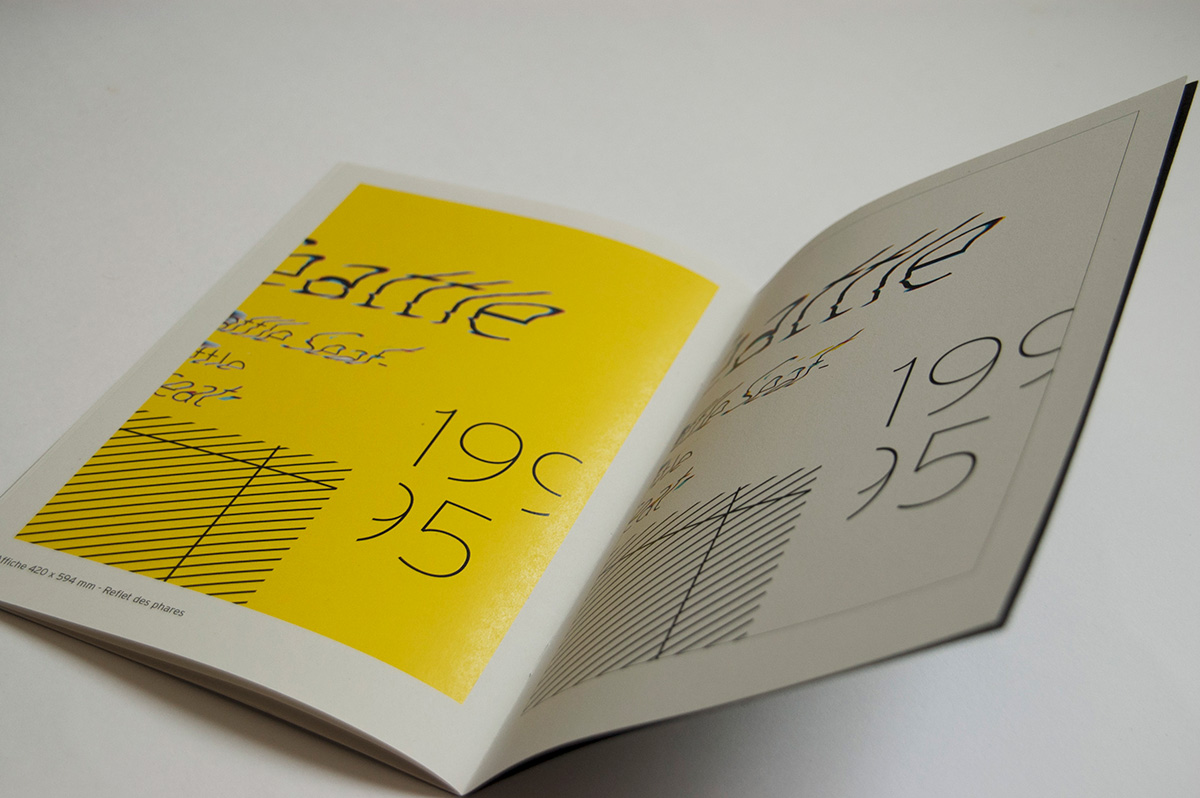 eattle
attle Seat-
ttle
Seat-
199
95
Affiche 420 x 594 mm - Reflet des phares
eattle
attle Seat-
ttle
eat-
199
95